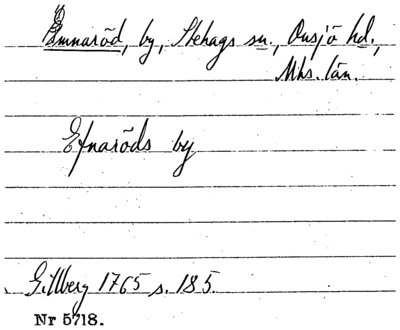 Emnaröd, by, Stehags sn., Onsjö hd.,
Mhs. län.
Efnaröds by
Gillberg 1765 s. 185.
Nr 5718.